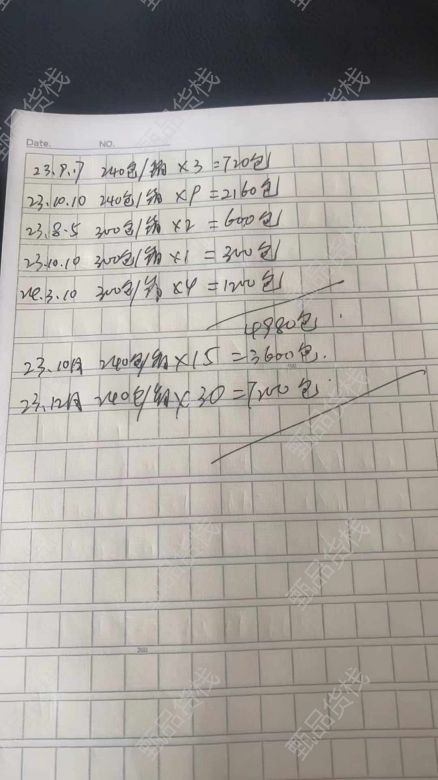 Date. NO.
23.9.7 240包/箱 ×3 =720包
23.10.10 240包/箱 ×9 =2160包
23.8.5 300包/箱 ×2 =600包
23.10.10 300包/箱 ×1 =300包
24.3.10 300包/箱 ×4 =1200包
4980包.
23.10月 240包/箱 ×15 =3600包.
23.12月 240包/箱 ×30 =7200包.
甄品货栈